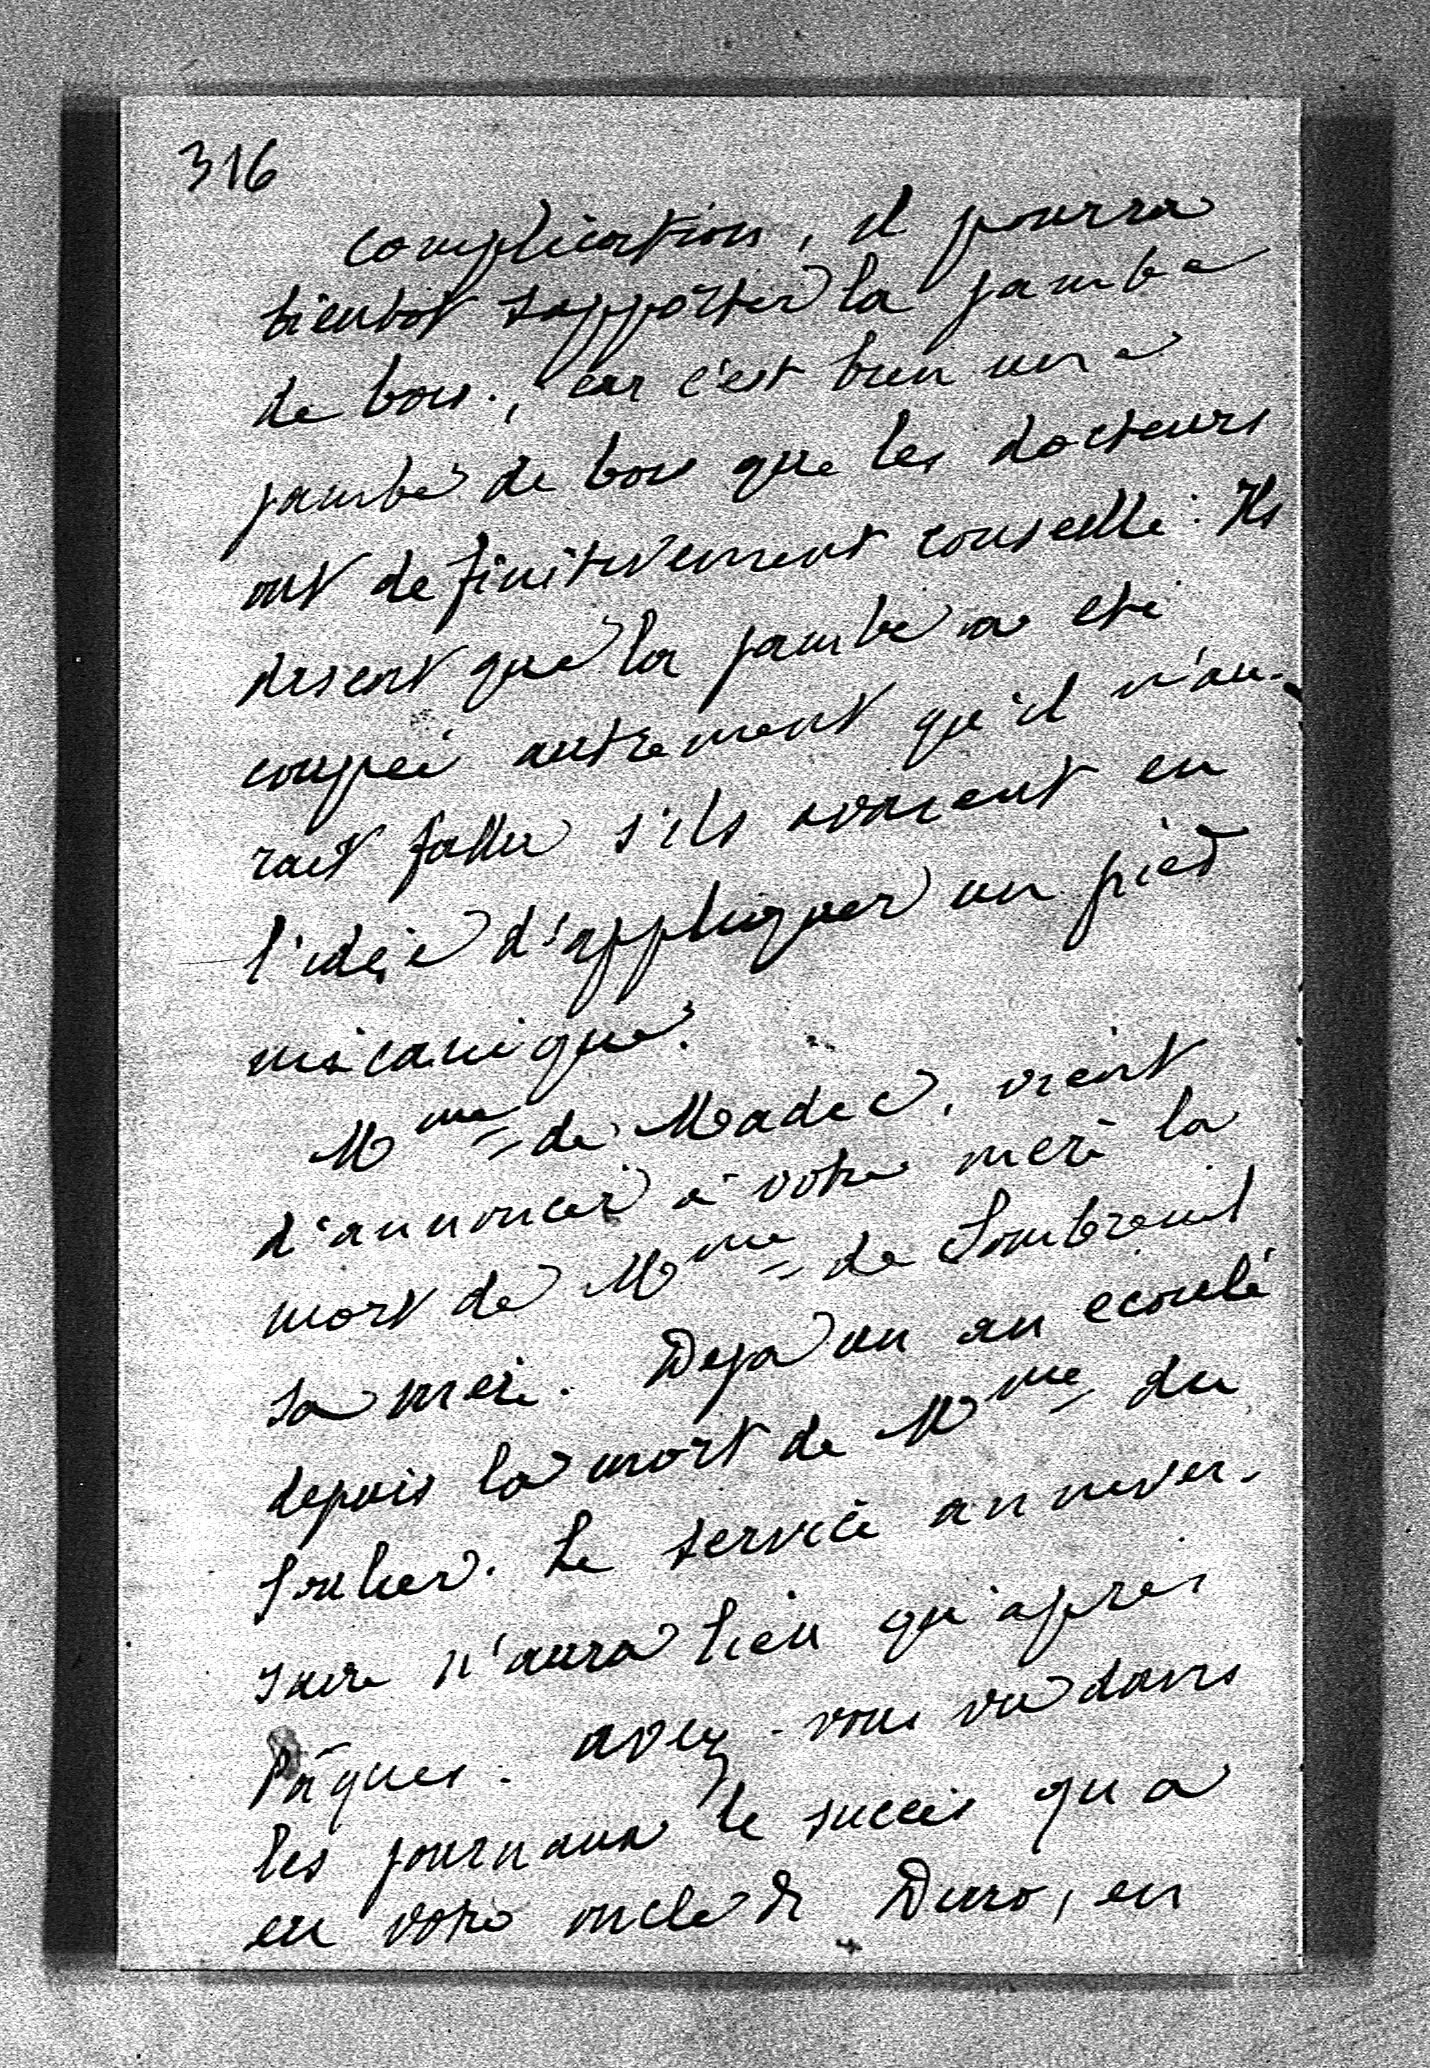 316
complication, il pourra
bientot supporter la jambe
de bois., car c'est bien une
jambe de bois que les docteurs
ont definitivement conseillé. Ils
disent que la jambe a eté
coupée autrement qu'il n'au-
rait fallu s'ils avaient eu
l'idée d'appliquer un pied
mécanique.
Mme de Madec, vient
d'annoncer à votre mère la
mort de Mme de Sombreuil
sa mère. Deja un an ecoulé
depuis la mort de Mme du
. Le service anniver-
saire n'aura lieu qu'après
Pâques. avez-vous vu dans
les journaux le succès qu'a
eu votre oncle Duro, en